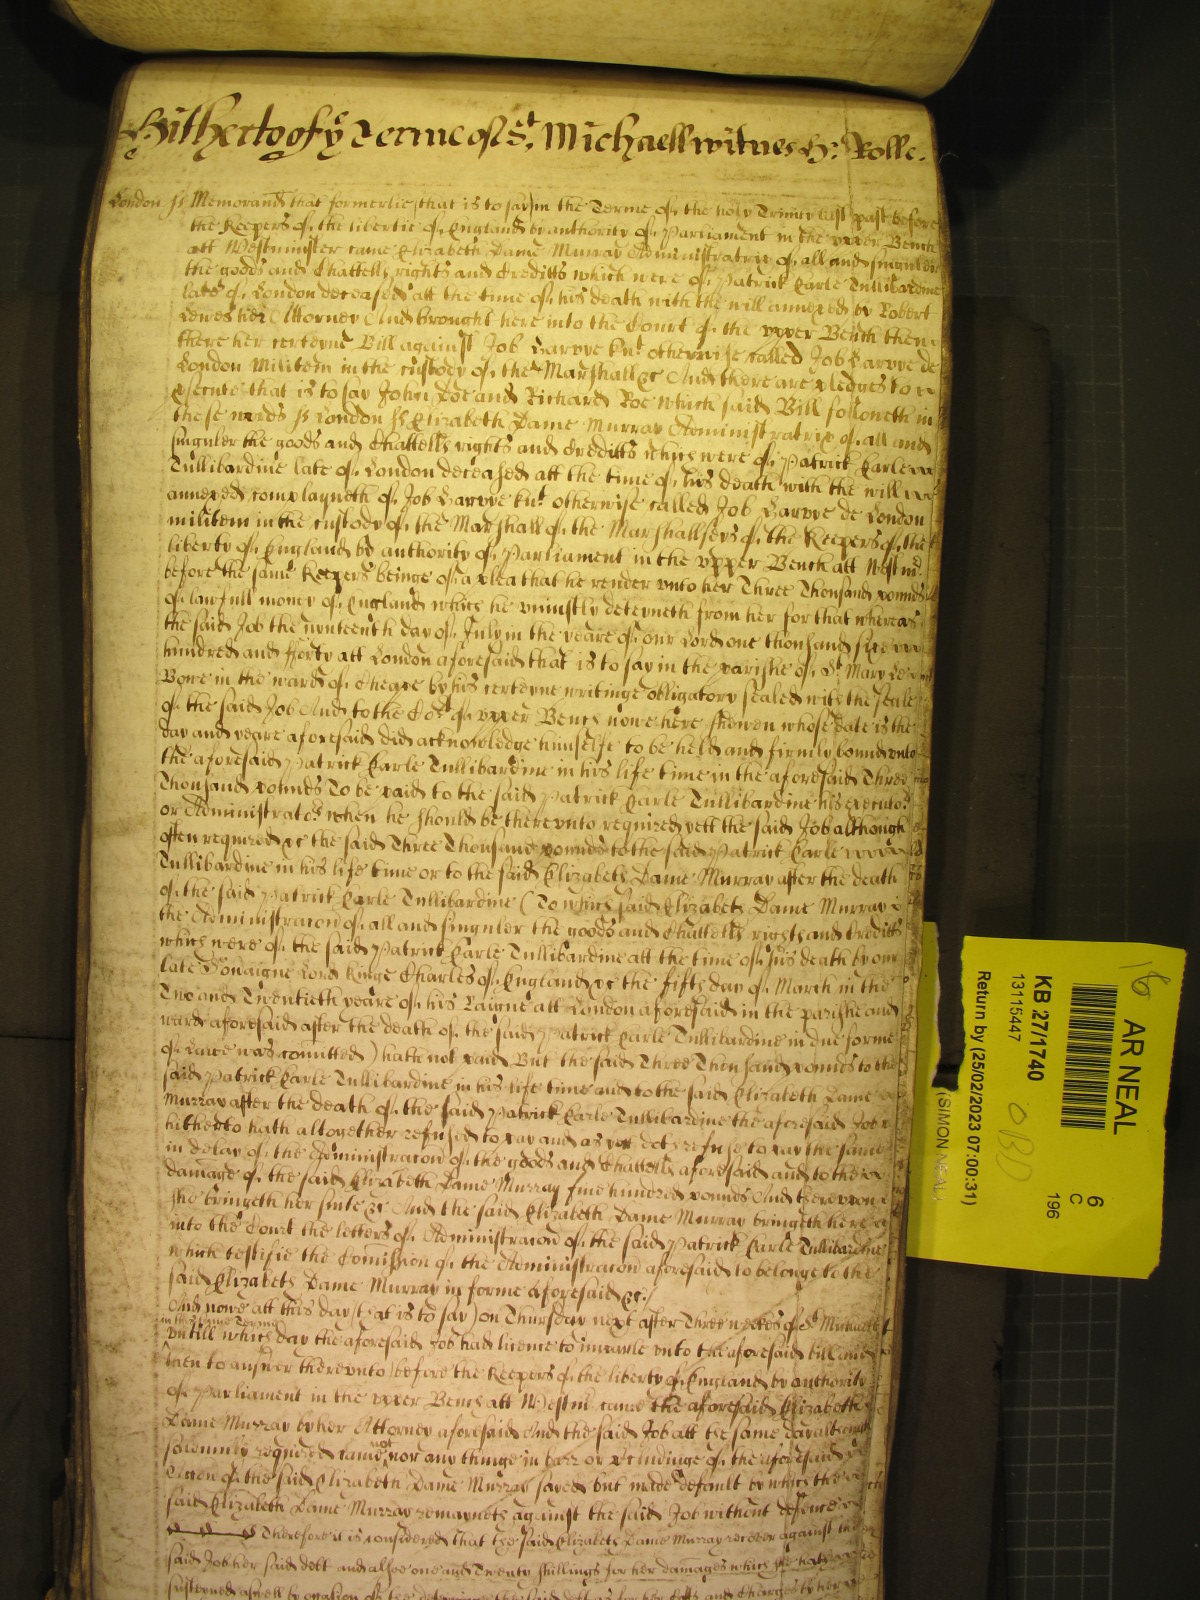 Hitherto of ye Terme of St. Michaell witnes H: Rolle.
London ss Memorand that formerlie (that is to say) in the Terme of the holy Trinity last past before
the Keepers of the libertie of England by authority of Parliament in the upper Bench
att Westminster came Elizabeth Dame Murray Administratrix of all and singuler
the goods and Chattells rights and Creditts which were of Patrick Earle Tullibardine
late of London deceased att the time of his death with the will annexed by Robert
Lewes her Attorney And brought here into the Court of the upper Bench then
there her certeyne Bill against Job Harvye knt otherwise called Job Harvye de
London Militem in the custody of the Marshall &c And there are pledges to
prsecute that is to say John Doe and Richard Roe which said Bill followeth in
these words ss London ss Elizabeth Dame Murray Administratrix of all and
singuler the goods and Chattells rights and Creditts which were of Patrick Earle
Tullibardine late of London deceased att the time of his death with the will
annexed complayneth of Job Harvye knt otherwise called Job Harvye de London
militem in the custody of the Marshall of the Marshallseys of the Keepers of the
liberty of England by authority of Parliament in the upper Bench att Westmr
before the same Keepers beinge of a plea that he render unto her Three Thousand pounds
of lawfull money of England which he uniustly deteyneth from her for that whereas
the said Job the nynteenth day of July in the yeare of our Lord one thousand sixe
hundred and fforty att London aforesaid that is to say in the parishe of St Mary Le
Bowe in the ward of Cheape by his certeyne writinge obligatory sealed with the seale
of the said Job And to the Cort of upper Bench nowe here shewen whose date is the
day and yeare aforesaid did acknowledge himselfe to be held and firmly bound unto
the aforesaid Patrick Earle Tullibardine in his life time in the aforesaid Three
Thousand pounds To be paid to the said Patrick Earle Tullibardine his executors
or Administrators when he should be thereunto required yett the said Job although
often required &c the said Three Thousand pounds to the said Patrick Earle
Tullibardine in his life time or to the said Elizabeth Dame Murray after the death
of the said Patrick Earle Tullibardine (To which said Elizabeth Dame Murray
the Administracon of all and singuler the goods and Chattells rights and Creditts
which were of the said Patrick Earle Tullibardine att the time of his death by our
late Sovraigne Lord Kinge Charles of England &c the fifth day of March in the
Two and Twentieth yeare of his Raigne att London aforesaid in the parishe and
ward aforesaid after the death of the said Patrick Earle Tullibardine in due forme
of Lawe was comitted) hath not paid But the said Three Thousand pounds to the
said Patrick Earle Tullibardine in his life time and to the said Elizabeth Dame
Murray after the death of the said Patrick Earle Tullibardine the aforesaid Job
hitherto hath altogether refused to pay and as yet doth refuse to pay the same
in delay of the Administracon of the goods and Chattells aforesaid and to the
damage of the said Elizabeth Dame Murray five hundred pounds And thereupon
she bringeth her suite &c And the said Elizabeth Dame Murray bringeth here
into the Court the letters of Administracon of the said Patrick Earle Tullibardine
which testifie the Comission of the Administracon aforesaid to belonge to the
said Elizabeth Dame Murray in forme aforesaid &c.
And nowe att this day (that is to say) on Thursday next after Three weekes of St Michaell
in this same Terme
untill which day the aforesaid Job had licence to imparle unto the aforesaid bill and
then to answer thereunto) before the Keepers of the liberty of England by authority
of Parliament in the upper Bench att Westmr came the aforesaid Elizabeth
Dame Murray by her Attorney aforesaid And the said Job att the same day although
solemnly required came not nor any thinge in barr or prcludinge of the aforesaid
Accon of the said Elizabeth Dame Murray sayed but made default by which the
said Elizabeth Dame Murray remayneth against the said Job without defence
Therefore it is considered that the said Elizabeth Dame Murray recover against the
said Job her said debt and alsoe one and Twenty shillings for her damages which she hath
susteyned aswell by occasion of the deteyninge the said debt as for her Costs and Charges by her
16
AR NEAL
KB 27/1740
13115447
Return by (25/02/2023 07:00:31)
(SIMON NEAL)
OBD
6
C
196